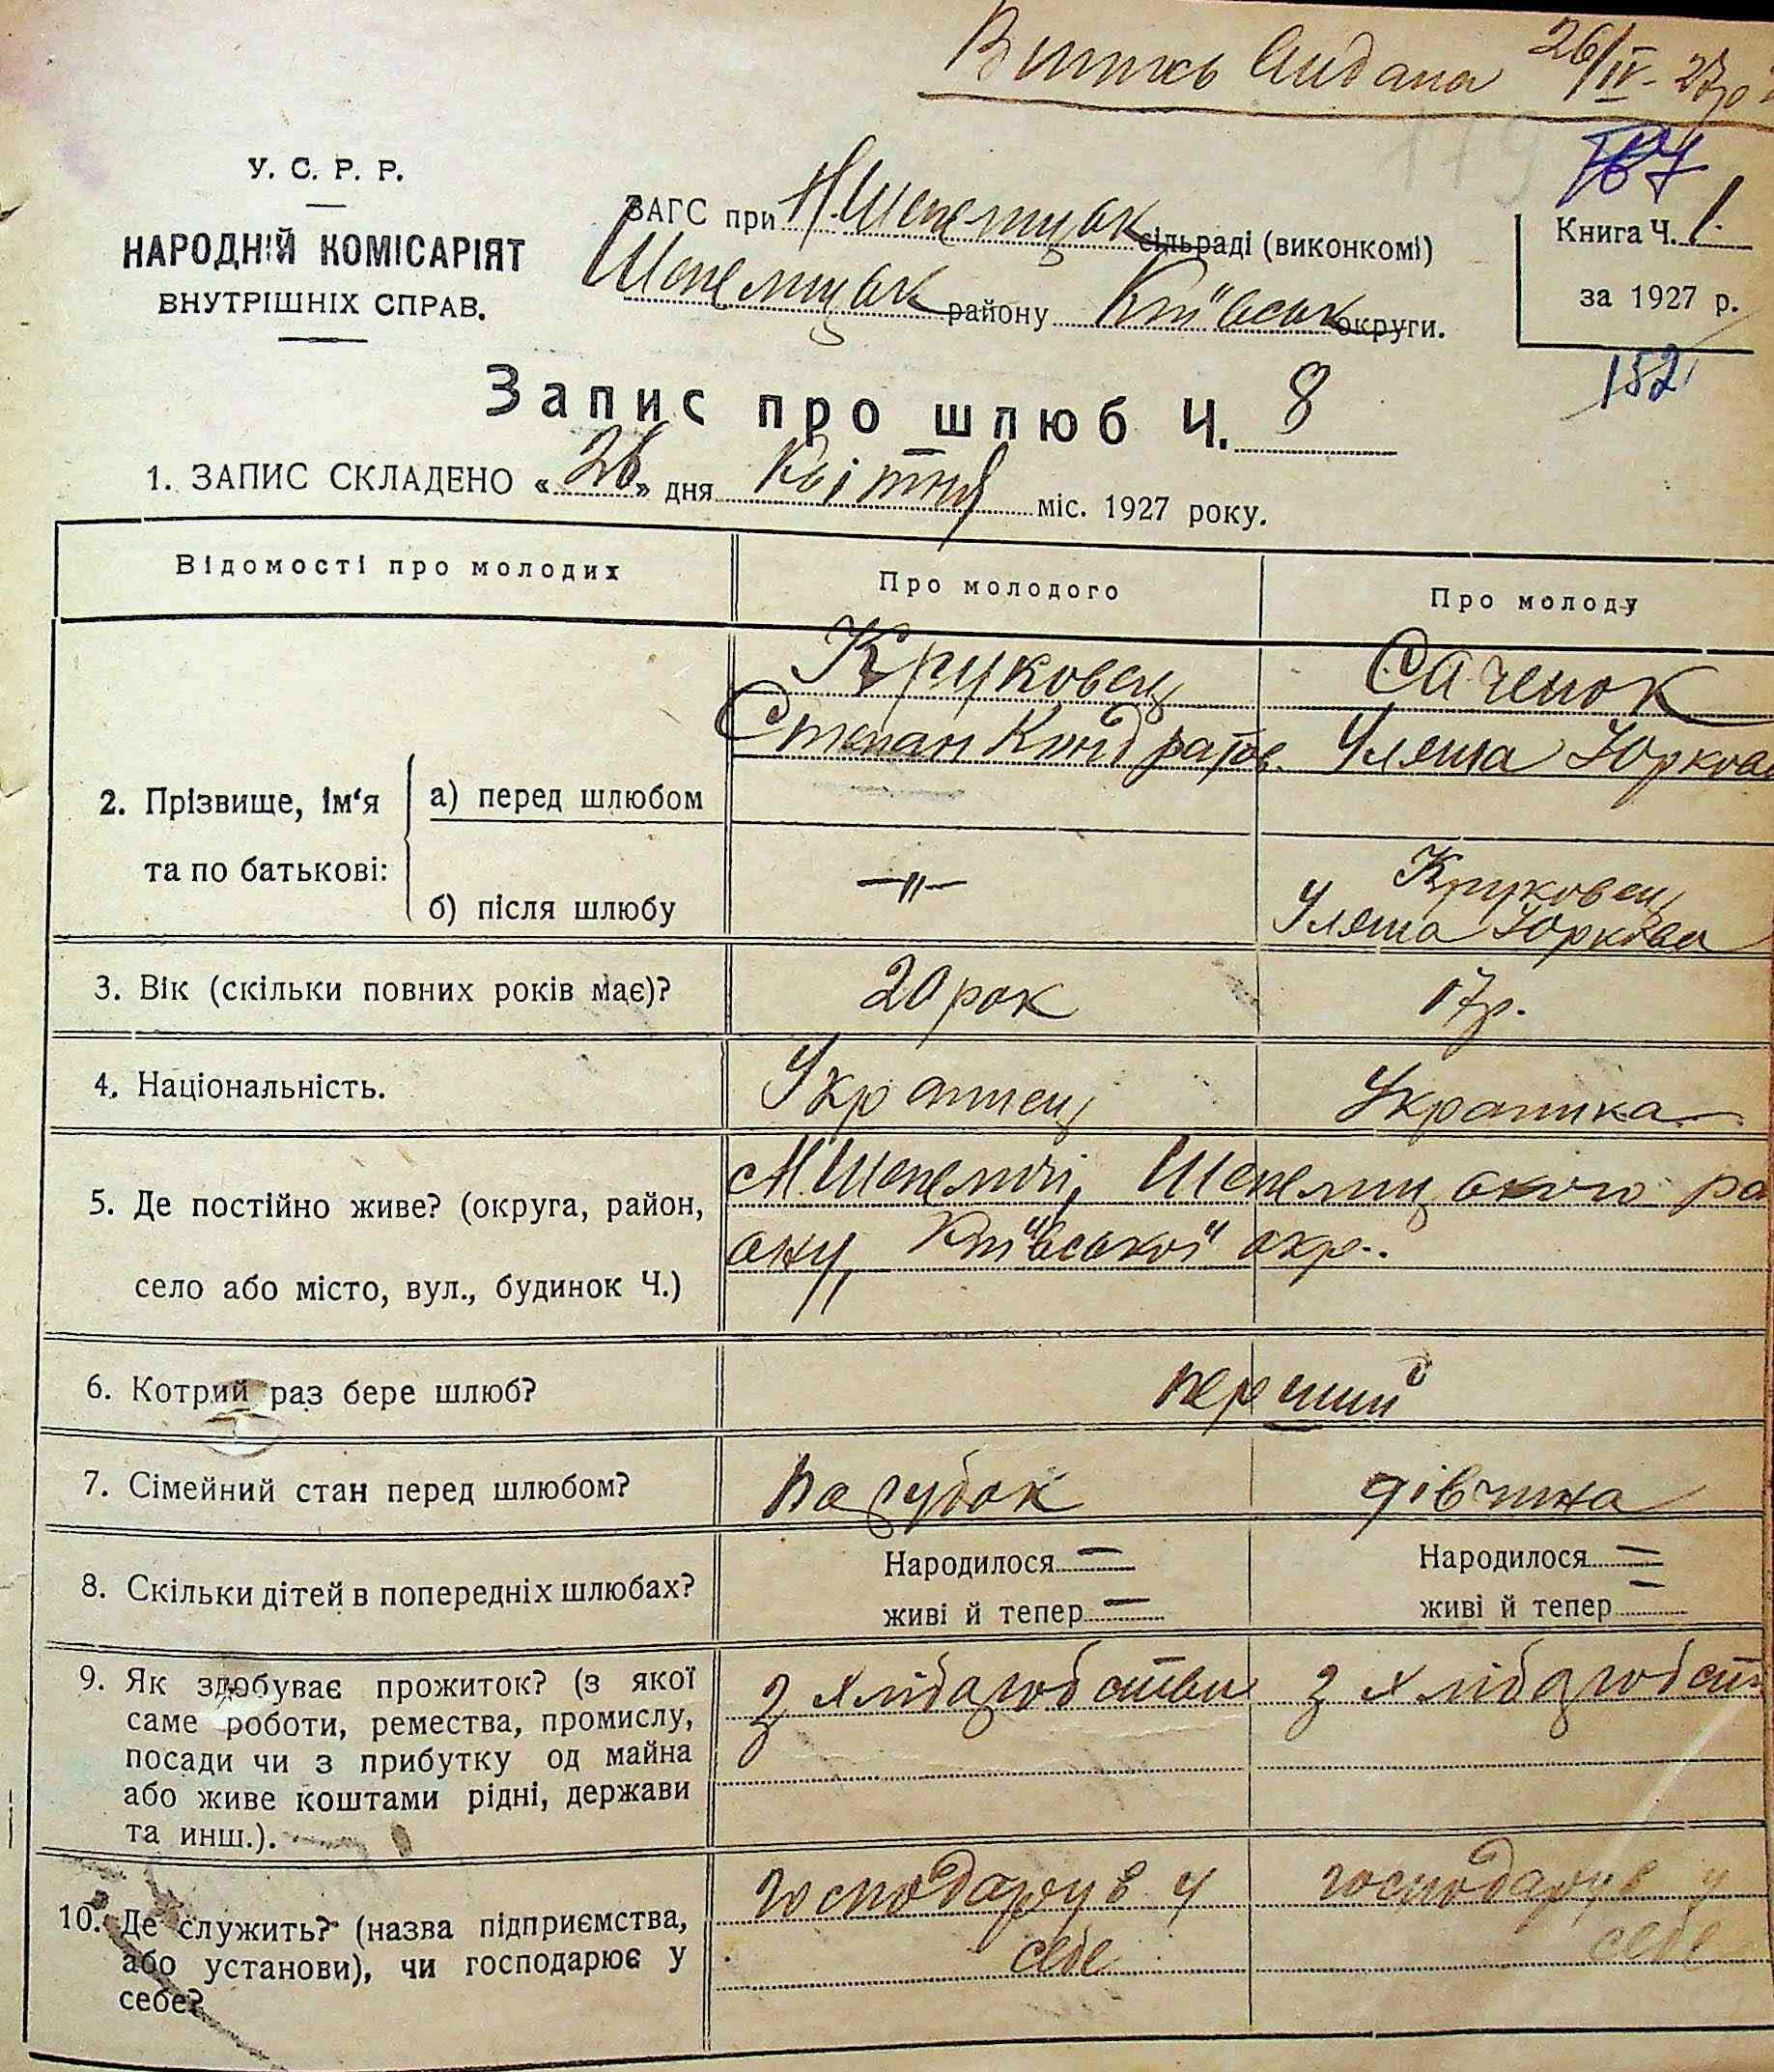 Випись видана 26/IV-27р
179
167
У. С. Р. Р.
НАРОДНІЙ КОМІСАРІЯТ
ВНУТРІШНІХ СПРАВ.
ЗАГС при Н.Шепелицьк сільраді (виконкомі)
Шепелицьк району Київськ округи.
Книга Ч. 1.
за 1927 р.
152
Запис про шлюб Ч. 8
1. ЗАПИС СКЛАДЕНО «26» дня Квітня міс. 1927 року.
Відомості про молодих
Про молодого
Про молоду
2. Прізвище, ім'я та по батькові:
а) перед шлюбом
Круковец
Степан Кондратов.
Саченок
Уляна Юркова
б) після шлюбу
—〃—
Круковец
Уляна Юркова
3. Вік (скільки повних років має)?
20 рок
17р.
4. Національність.
Українец
Українка
5. Де постійно живе? (округа, район,
село або місто, вул., будинок Ч.)
Шепеличі, Шепелицького ра
ону, Київської окр.
6. Котрий раз бере шлюб?
перший
7. Сімейний стан перед шлюбом?
парубок
дівчина
8. Скільки дітей в попередніх шлюбах?
Народилося —
живі й тепер —
Народилося —
живі й тепер —
9. Як здобуває прожиток? (з якої
саме роботи, ремества, промислу,
посади чи з прибутку од майна
або живе коштами рідні, держави
та инш.).
з хлібаробства
з хлібаробст
10. Де служить? (назва підприємства,
або установи), чи господарює у
себе?
господарує у
себе
господарує у
себе